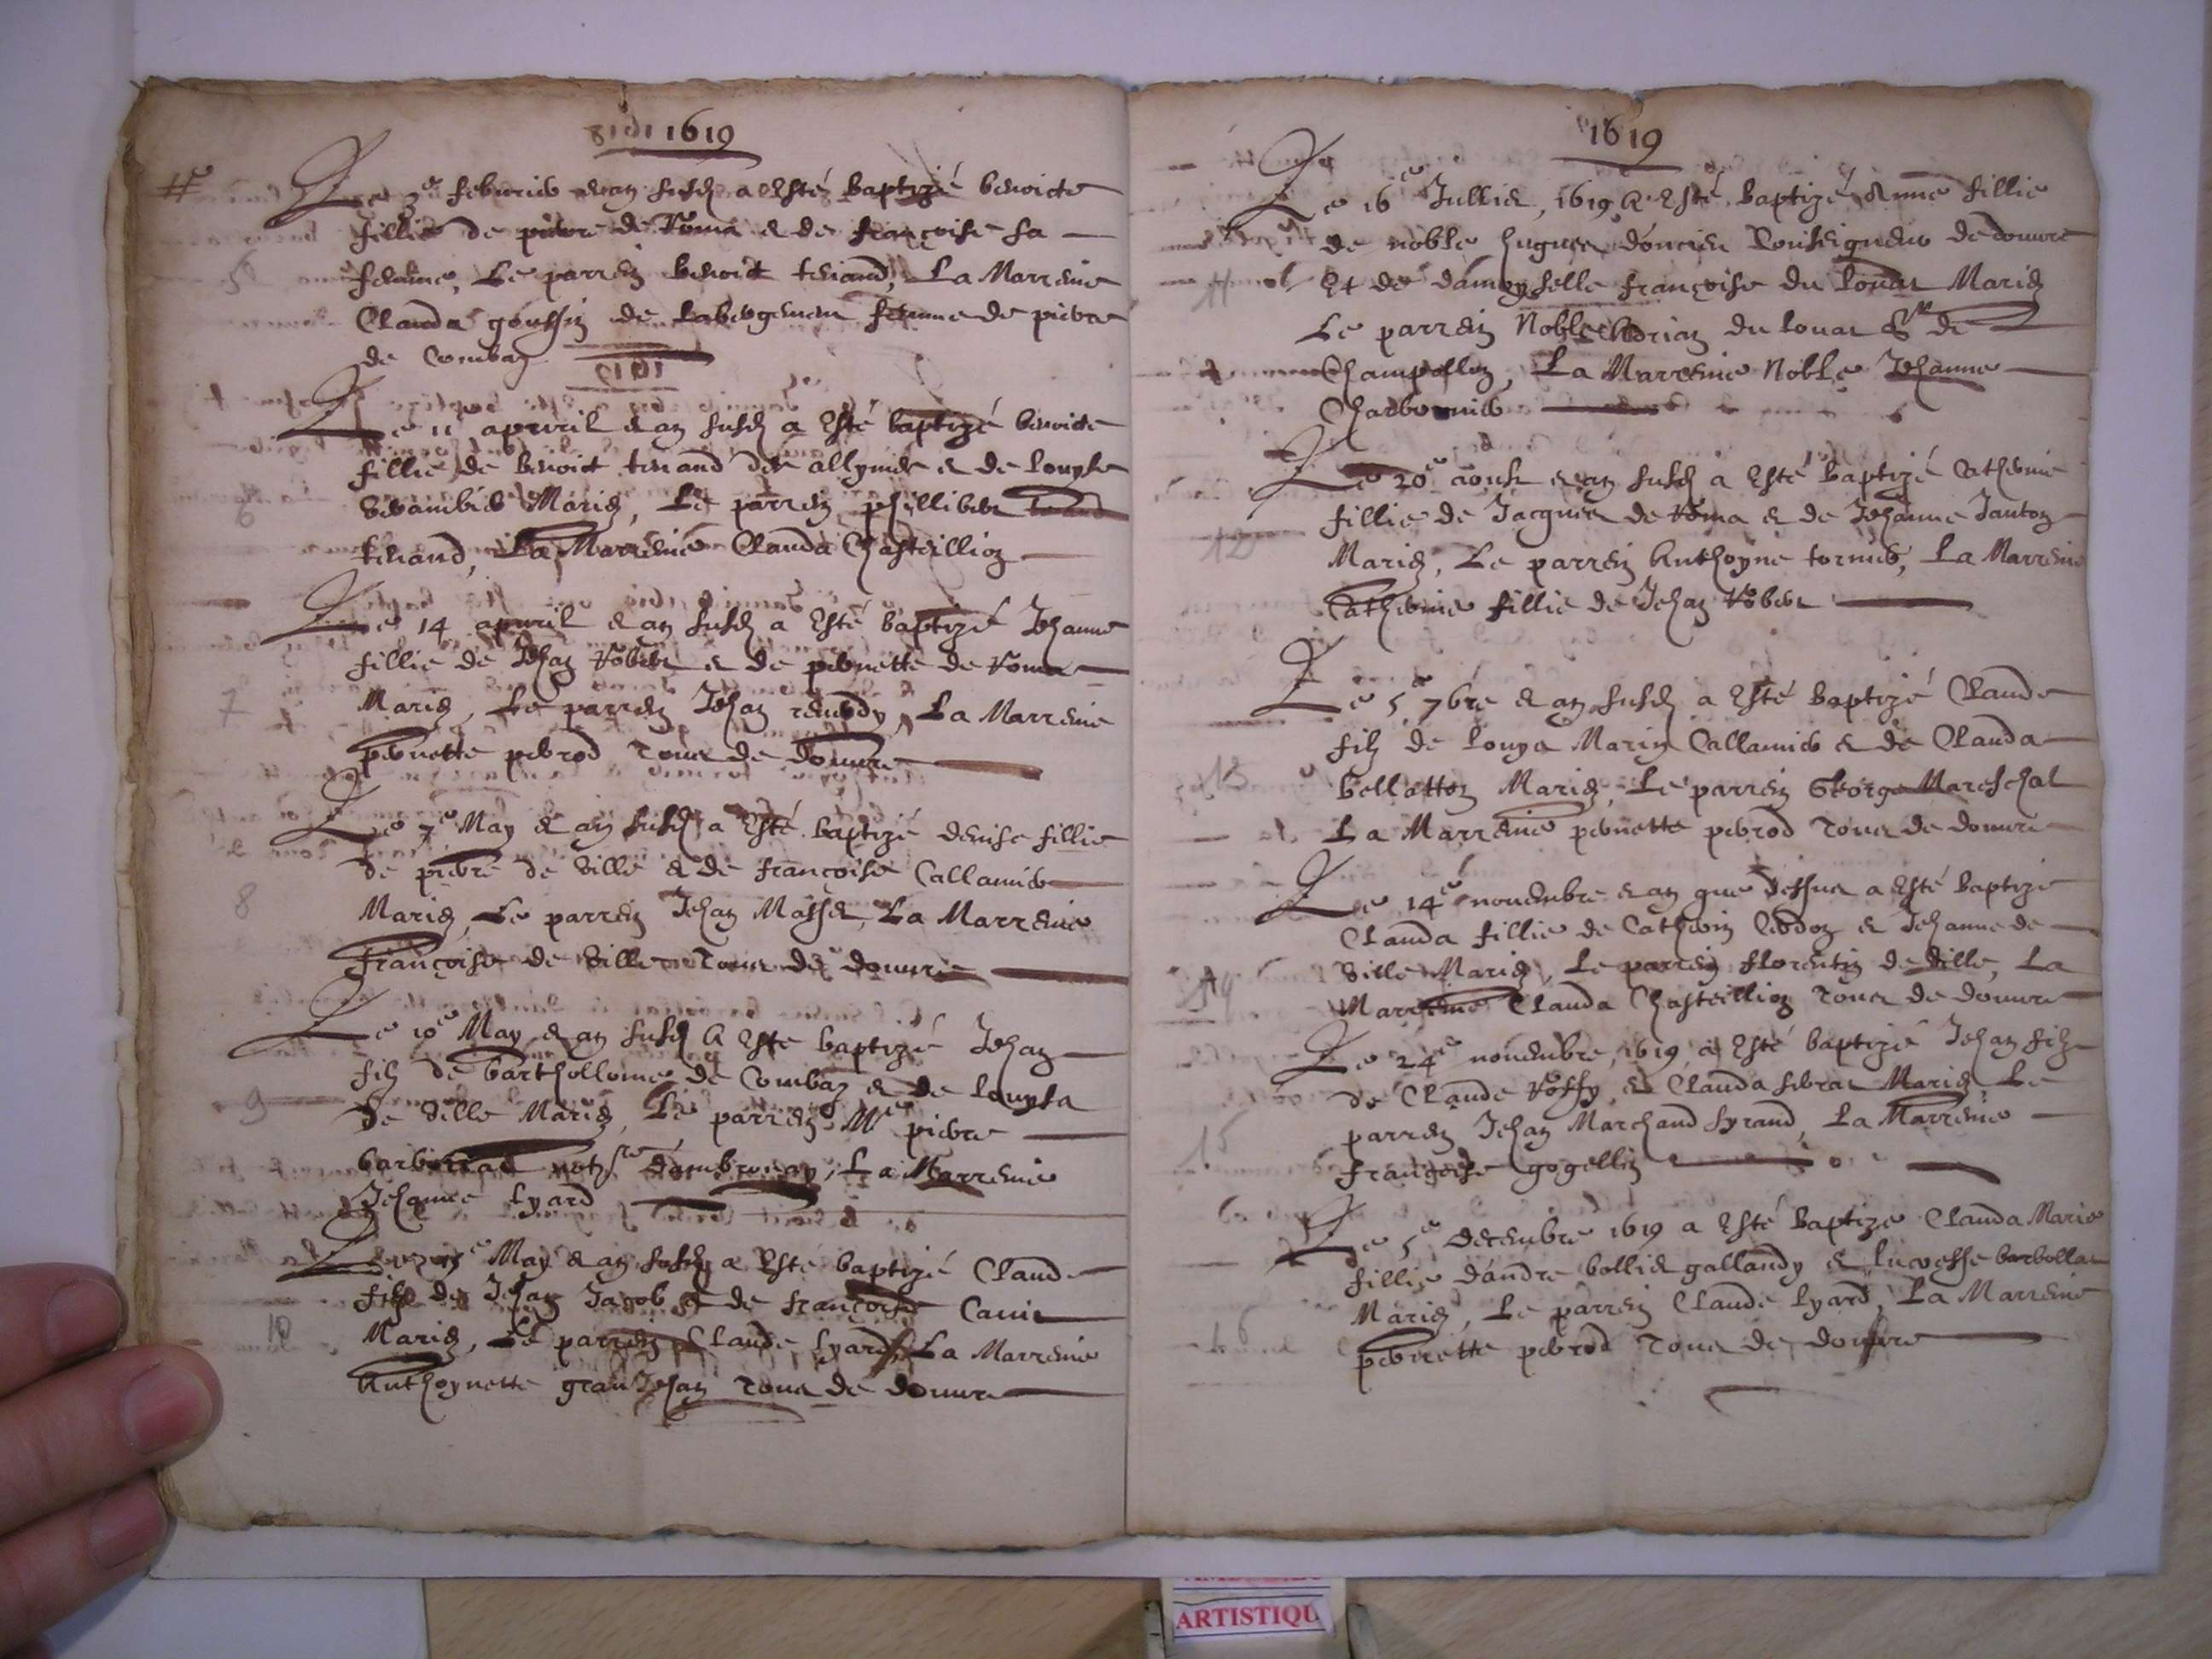 1619
Le 3e febvrier et an susd a esté baptizé benoicte
fillie de pierre de Roma et de françoise sa
femme, Le parrein benoict tenand, La Marreine
Clauda goussin de femme de pierre
de Combaz
Le 11 apvril et an susd a esté baptizé benoicte
fillie de benoict tenand des allymes et de louyse
Mariez, Le parrein phillibert
tenand, La Marreine Clauda Chasteillion
Le 14 apvril et an susd a esté baptizé Jehanne
fillie de Jehan Robert et de pernette de Roma
7
Mariez, Le parrein Jehan remody, La Marreine
pernette pebrod tous de douvre
Le 7e May et an susd a esté baptizé denise fillie
de pierre de Ville et de françoise Callamier
8
Mariez, Le parrein Jehan Masset, La Marreine
françoise de Ville tous de douvre
Le 10e May et an susd a esté baptizé Jehan
filz de barthollome de Combaz et de louysa
9
de Ville Mariez, Le parrein Me pierre
d'ambronay, La Marreine
Jehanne lyard
May et an susd a esté baptizé Claude
filz de Jehan Jacob et de françoise
10
Mariez, Le parrein Claude lyard, La Marreine
Anthoynette granJehan tous de douvre
1619
Le 16e Julliet, 1619 a esté baptizé Anne fillie
de noble hugues d'oncieu Conseigneur de douvre
11
Et de damoyselle françoise du louat Mariez
Le parrein Noble Adrian du louat Sr de
Champollon, La Marreine Noble Jehanne
Charbonnier
Le 20e aoust et an susd a esté baptizé Catherine
fillie de Jacques de Roma et de Jehanne Janton
12
Mariez, Le parrein Anthoyne tornier, La Marreine
Catherine fillie de Jehan Robert
Le 5e 7bre et an susd a esté baptizé Claude
filz de louys Marin Callamier et de Clauda
13
bellatton Mariez, Le parrein George Mareschal
La Marreine pernette pebrod tous de douvre
Le 14e novembre et an que dessus a esté baptizé
Clauda fillie de Catherin et Jehanne de
14
Ville Mariez, Le parrein florentin de Ville, La
Marreine Clauda Chasteillion tous de douvre
Le 24e novembre, 1619 a esté baptizé Jehan filz
de Claude Rossy et Clauda Mariez Le
15
parrein Jehan Marchand Syrand, La Marreine
françoise gogellin
Le 5e decembre 1619 a esté baptizé Clauda Marie
fillie d'andre bolliet gallandy et lucresse barbollat
16
Mariez, Le parrein Claude lyard, La Marreine
pernette pebrod tous de douvre
ARTISTIQU